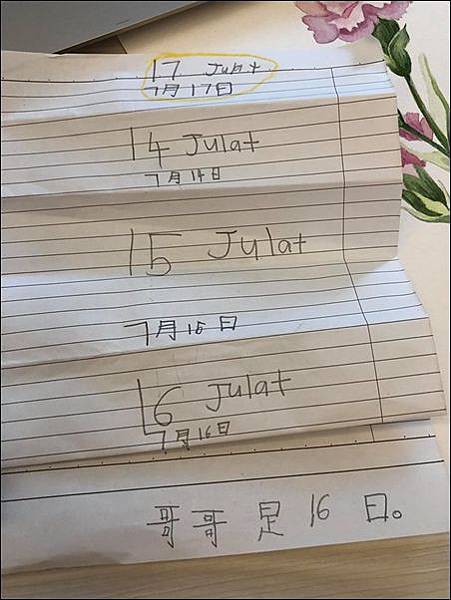 17 Julat
7月17日
14 Julat
7月14日
15 Julat
7月15日
16 Julat
7月16日
哥哥 是 16 日。